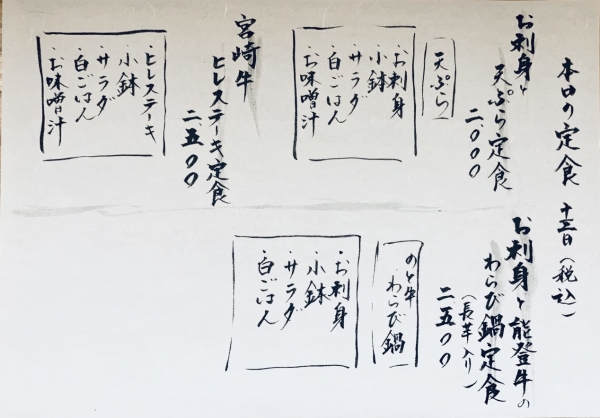 本日の定食 十三日(税込)
お刺身と
天ぷら定食
二,〇〇〇
天ぷら
・お刺身
・小鉢
・サラダ
・白ごはん
・お味噌汁
宮崎牛
ヒレステーキ定食
二,五〇〇
・ヒレステーキ
・小鉢
・サラダ
・白ごはん
・お味噌汁
お刺身と能登牛の
わらび鍋定食
(長芋入り)
二,五〇〇
のと牛
わらび鍋
・お刺身
・小鉢
・サラダ
・白ごはん